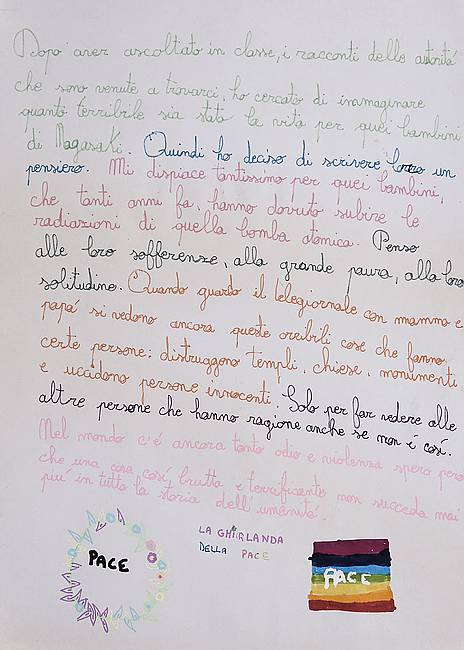 Dopo aver ascoltato in classe, i racconti delle autorità
che sono venute a trovarci, ho cercato di immaginare
quanto terribile sia stata la vita per quei bambini
di Nagasaki. Quindi ho deciso di scrivere loro un
pensiero. Mi dispiace tantissimo per quei bambini,
che tanti anni fa, hanno dovuto subire le
radiazioni di quella bomba atomica. Penso
alle loro sofferenze, alla grande paura, alla loro
solitudine. Quando guardo il telegiornale con mamma e
papá si vedono ancora queste orribili cose che fanno
certe persone: distruggono templi, chiese, monumenti
e uccidono persone innocenti. Solo per far vedere alle
altre persone che hanno ragione anche se non é cosí.
Nel mondo c'é ancora tanto odio e violenza spero peró
che una cosa cosí brutta e terrificante non succeda mai
piu' in tutta la storia dell'umanitá.
PACE
LA GHIRLANDA
DELLA PACE
PACE